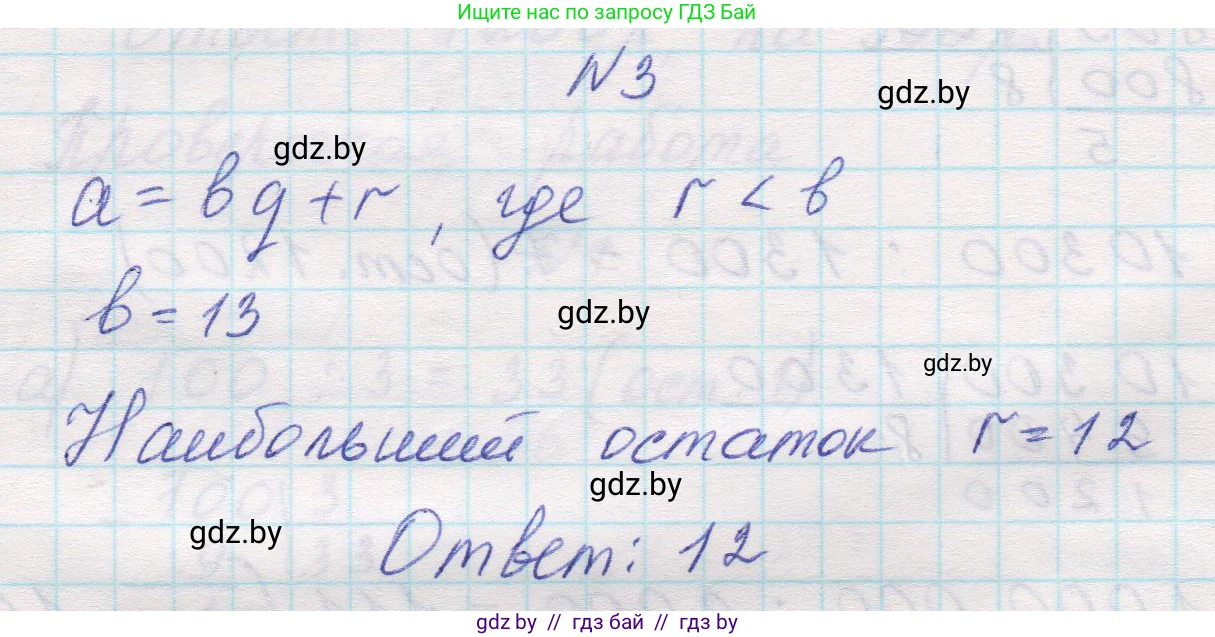 Ищите нас по запросу ГДЗ Бай
N 3
gdz.by
gdz.by
a = bq + r, где r < b
b = 13
gdz.by
gdz.by
Наибольший остаток r = 12
gdz.by
gdz.by
Ответ: 12
gdz by // гдз бай // гдз by